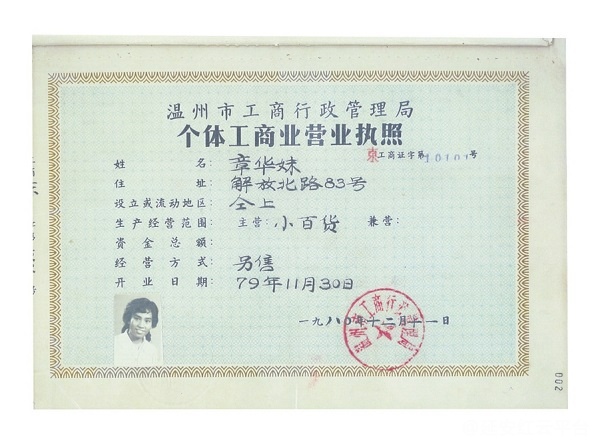 温州市工商行政管理局
个体工商业营业执照
东工商证字第10101号
姓 名: 章华妹
住 址: 解放北路83号
设立或流动地区: 仝上
生产经营范围: 主营: 小百货 兼营:
资金总额:
经营方式: 另售
开业日期: 79年11月30日
一九八〇年十二月十一日
温州市工商行政管理局
002